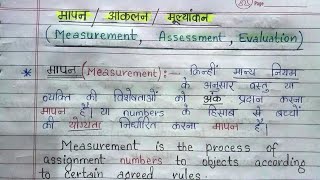 मापन / आकलन / मूल्यांकन
(Measurement, Assessment, Evaluation)
* मापन (Measurement):- किन्हीं मान्य नियम
के अनुसार वस्तु या
व्यक्ति की विशेषताओं को अंक प्रदान करना
मापन है। या numbers के हिसाब से बच्चों
की योग्यता निर्धारित करना मापन है।
Measurement is the process of
assignment numbers to objects according
to certain agreed rules.